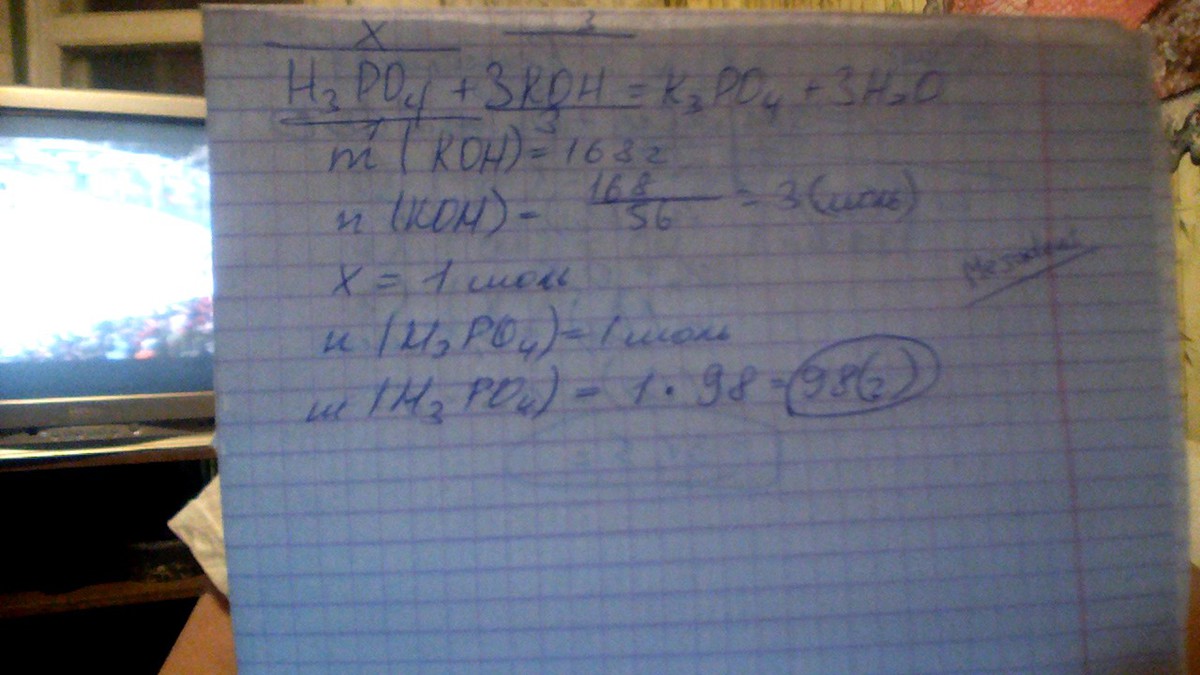 x 3
H₃PO₄ + 3KOH = K₃PO₄ + 3H₂O
1 3
m (KOH) = 168г
n (KOH) = 168/56 = 3 (моль)
x = 1 моль
n (H₃PO₄) = 1 моль
m (H₃PO₄) = 1 · 98 = 98(г)